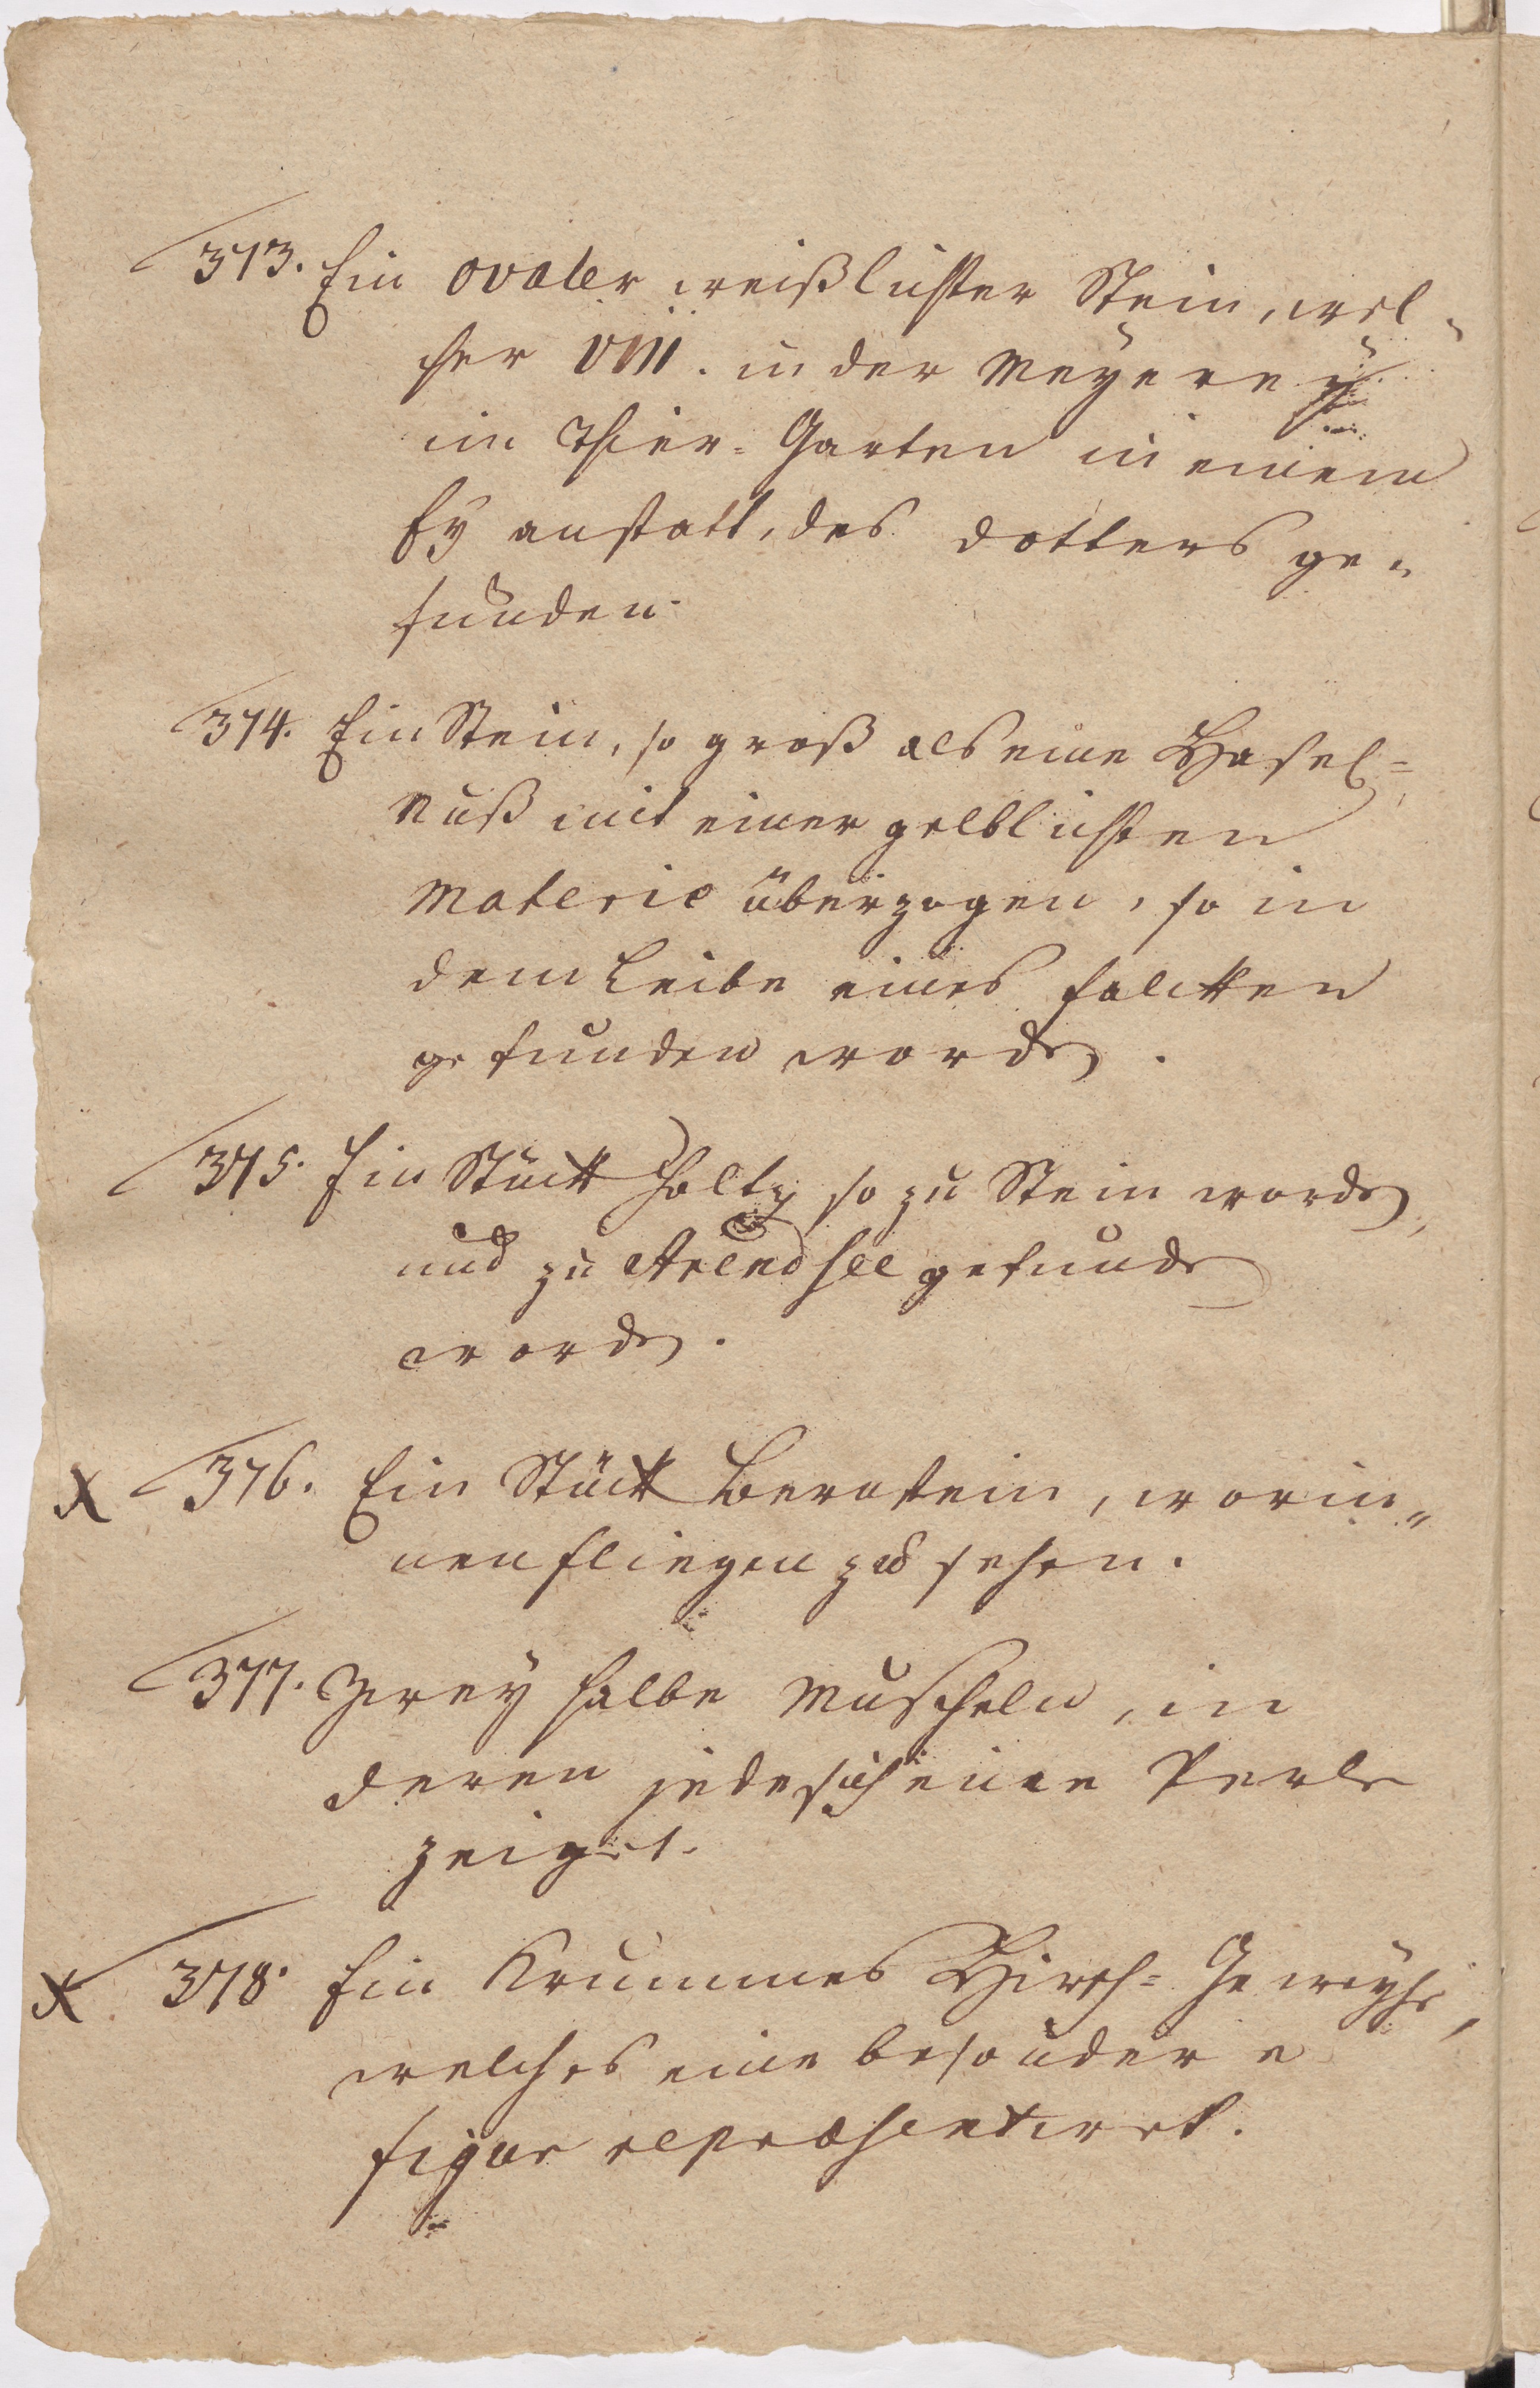 373. Ein ovaler weißlichter Stein, wel-
cher VIII. in der Meyerey
im Thier-Garten in einem
Ey anstatt, des Dotters ge-
funden.
374. Ein Stein, so groß als eine Hasel=
Nuß mit einer gelblichten
Materie überzogen, so in
dem Leibe eines Falcken
gefunden worden.
375. Ein Stück Holtz so zu Stein worden,
und zu Arendsee gefunden
worden.
X 376. Ein Stück Bernstein, worin=
nen Fliegen zu sehen.
377. Zwey halbe Muscheln, in
deren jede sich eine Perle
zeiget.
X 378. Ein Krummes Hirsch=Geweyhe,
welches eine besondere
Figur repræsentiret.